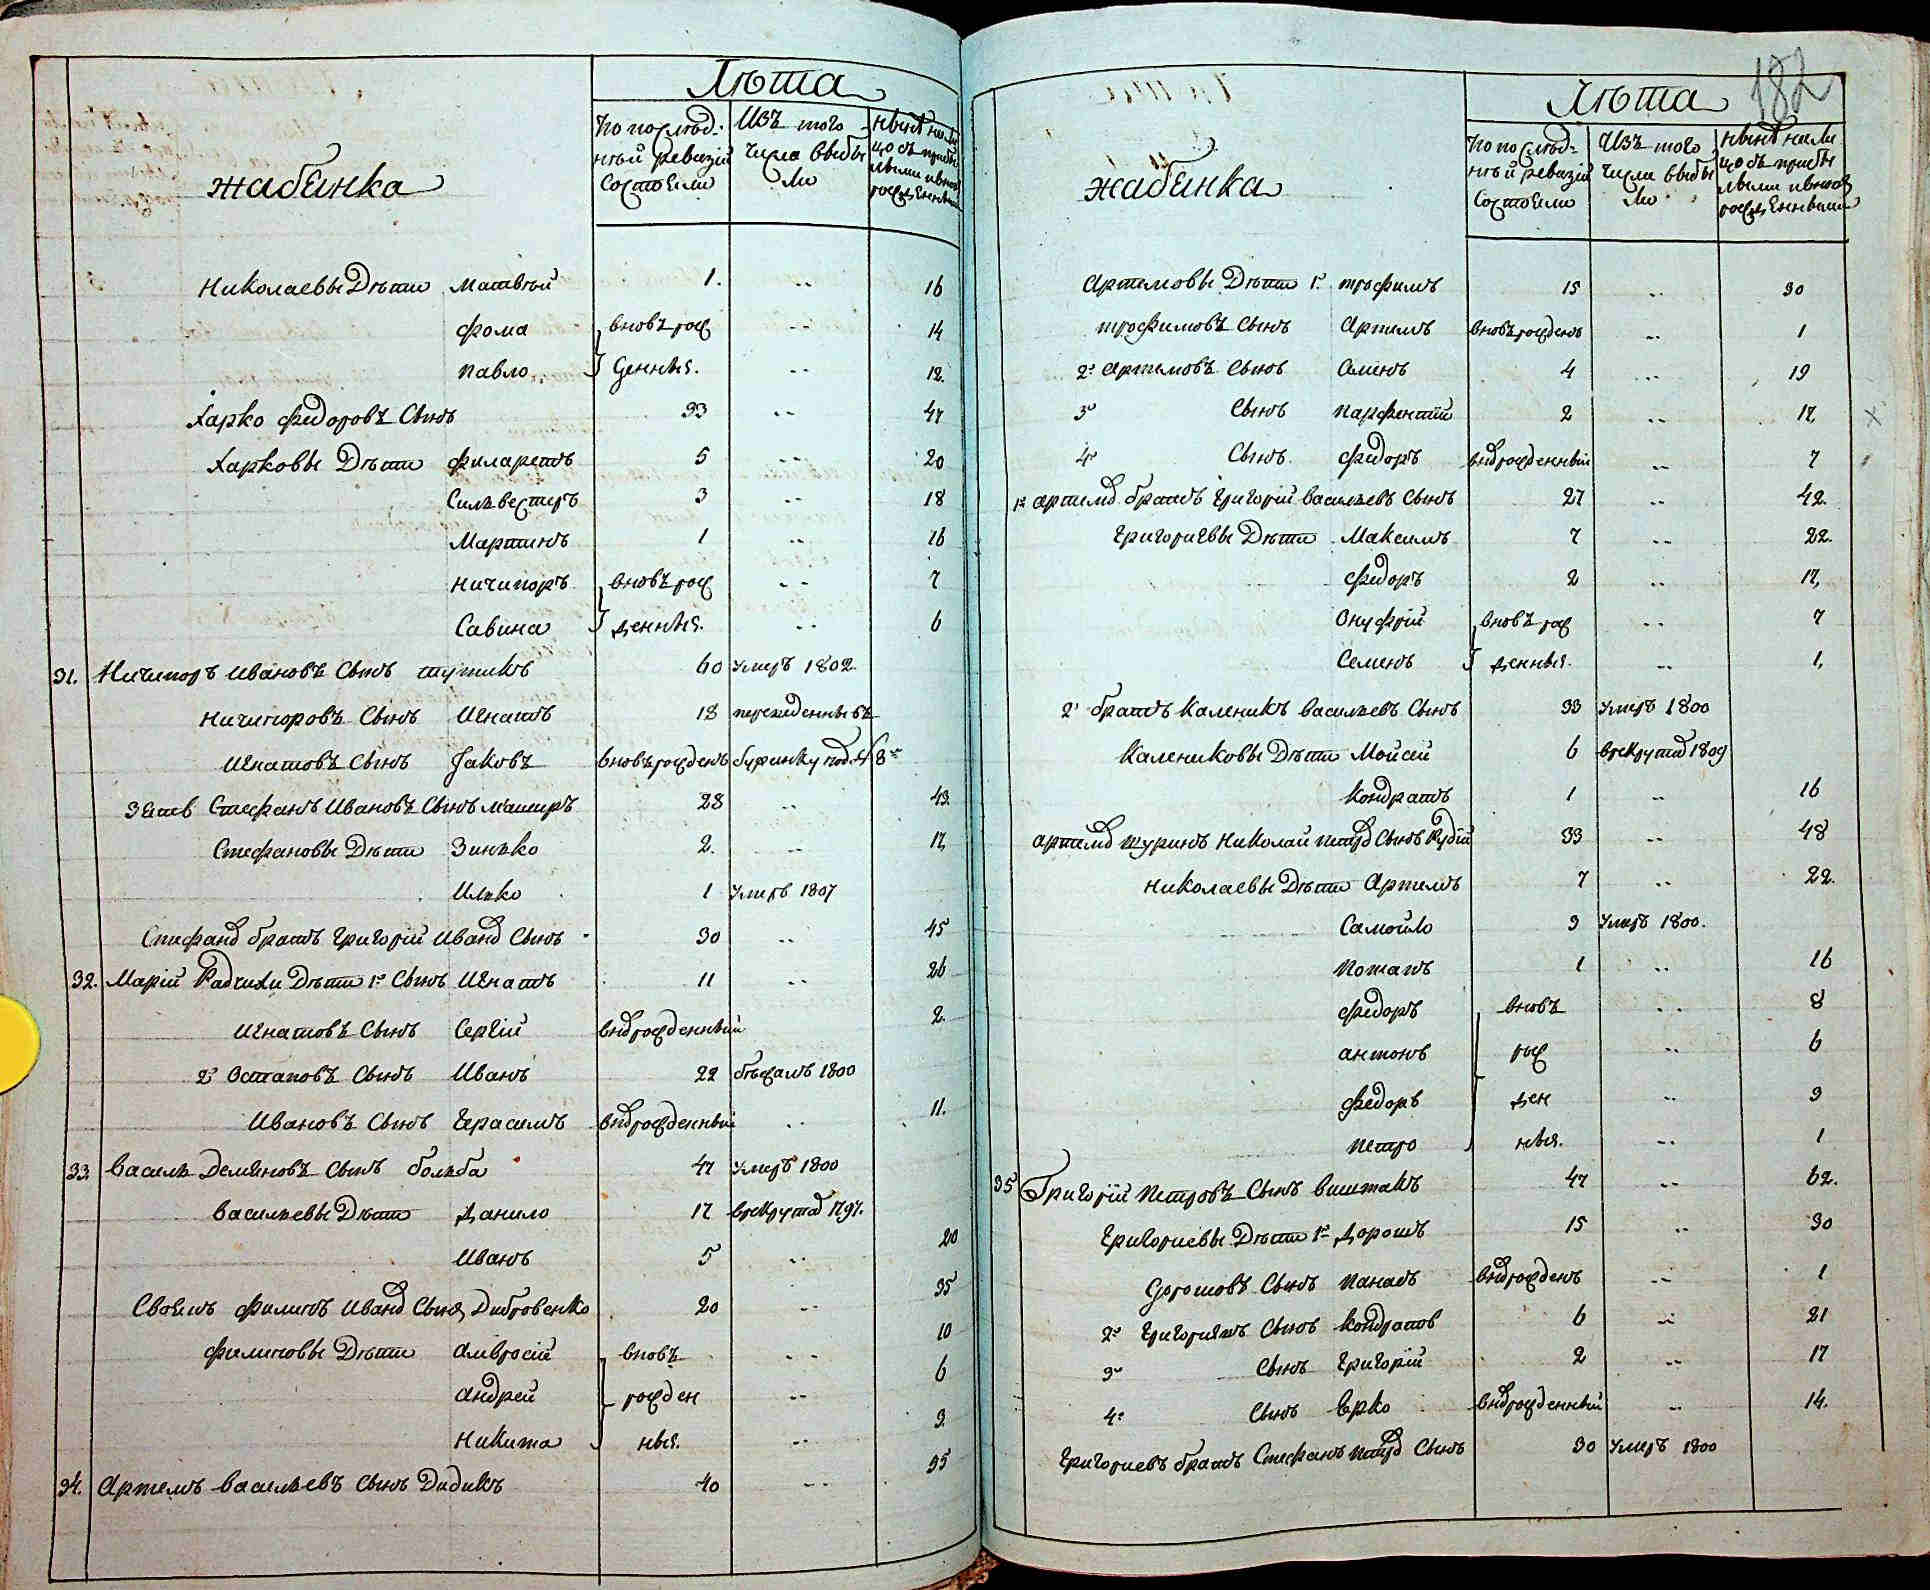 Лѣта
жабинка
По послѣд-
нѣй ревизіи
состояли
Изъ того
числа выбы
ло
нынѣ на ли
цо съ прибы
лыми и вновь
рожденными
Николаевы Дѣти Матвѣй 1. .. 16
фома вновь рож .. 14
павло денныя. .. 12.
Харко федоровъ Сынъ 33 .. 47
Харковы Дѣти филаретъ 5 .. 20
Сильвестеръ 3 .. 18
Мартинъ 1 .. 16
ничипоръ вновь рож .. 7
Савина денныя. .. 6
31. Ничипоръ Ивановъ Сынъ 60 умеръ 1802.
ничипоровъ Сынъ Игнатъ 18 переведенны въ
Игнатовъ Сынъ Яковъ вновь рожденъ буринку под. №8
Зятъ Стефанъ Ивановъ Сынъ 28 .. 43.
Стефановы Дѣти Зинько 2. .. 17,
Илько 1 умеръ 1807
Стефанов братъ григорій Иванов Сынъ 30 .. 45
32. Маріи Радчихи Дѣти 1й Сынъ Игнатъ 11 .. 26
Игнатовъ Сынъ Сергій вноврожденный 2.
2й Остаповъ Сынъ Иванъ 22 бѣжалъ 1800
Ивановъ Сынъ герасимъ вноврожденный .. 11.
33. Василь Демяновъ Сынъ больба 47 умеръ 1800
Васильевы Дѣти Данило 17 в рекрутах 1797.
Иванъ 5 .. 20
Своякъ филипъ Иванов Сынъ Дибровенко 20 .. 35
филиповы Дѣти Амвросій вновь .. 10
андрей рожден .. 6
Никита ныя. .. 3.
34. Артемъ васильевъ Сынъ Дидикъ 40 .. 55
182
Лѣта
жабинка
По послѣд-
нѣй ревизіи
состояли
Изъ того
числа выбы
ло
нынѣ на ли
цо съ прибы
лыми и вновь
рожденными
Артемовы Дѣти 1й трофимъ 15 .. 30
трофимовъ Сынъ Артемъ вновь рожденъ .. 1
2й Артемовъ Сынъ Семенъ 4 ... 19
3й Сынъ парфентій 2 .. 17,
4й Сынъ федоръ вноврожденный .. 7
1й Артемов братъ григорій васильевъ Сынъ 27 .. 42.
григориевы Дѣти Максимъ 7 .. 22.
федоръ 2 .. 17,
Онуфрій вновь рож .. 7
Семенъ денныя. .. 1,
2й братъ каленикъ васильевъ Сынъ 33 умеръ 1800
калениковы Дѣти Мойсей 6 в рекрутах 1809
кондратъ 1 .. 16
артемов шуринъ николай петров Сынъ Рудій 33 .. 48
николаевы Дѣти Артемъ 7 .. 22.
Самойло 3 умеръ 1800.
Потапъ 1 .. 16
федоръ вновь .. 8
антонъ рож .. 6
федоръ ден .. 3
петро ныя. .. 1
35 Григорій петровъ Сынъ виштакъ 47 .. 62.
григориевы Дѣти 1й Дорошъ 15 .. 30
Дорошовъ Сынъ панасъ вноврожденъ .. 1
2й григориевъ Сынъ кондратъ 6 .. 21
3й Сынъ григорій 2 .. 17
4й Сынъ Ерко вноврожденный .. 14.
григориевъ братъ Стефанъ петров Сынъ 30 умеръ 1800